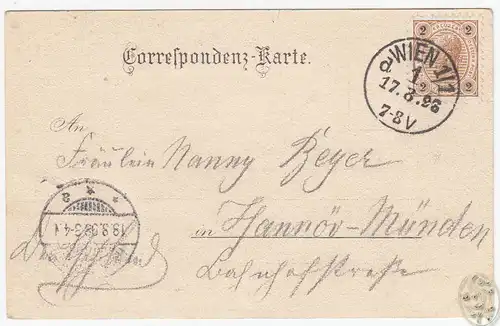 Correspondenz-Karte.
2 2
2 2
WIEN 1/1
d 1
17.8.98
7-8V
An
Fräulein Nanny Beyer
in Hannöv-Münden
Bahnhofstraße
Deutschland